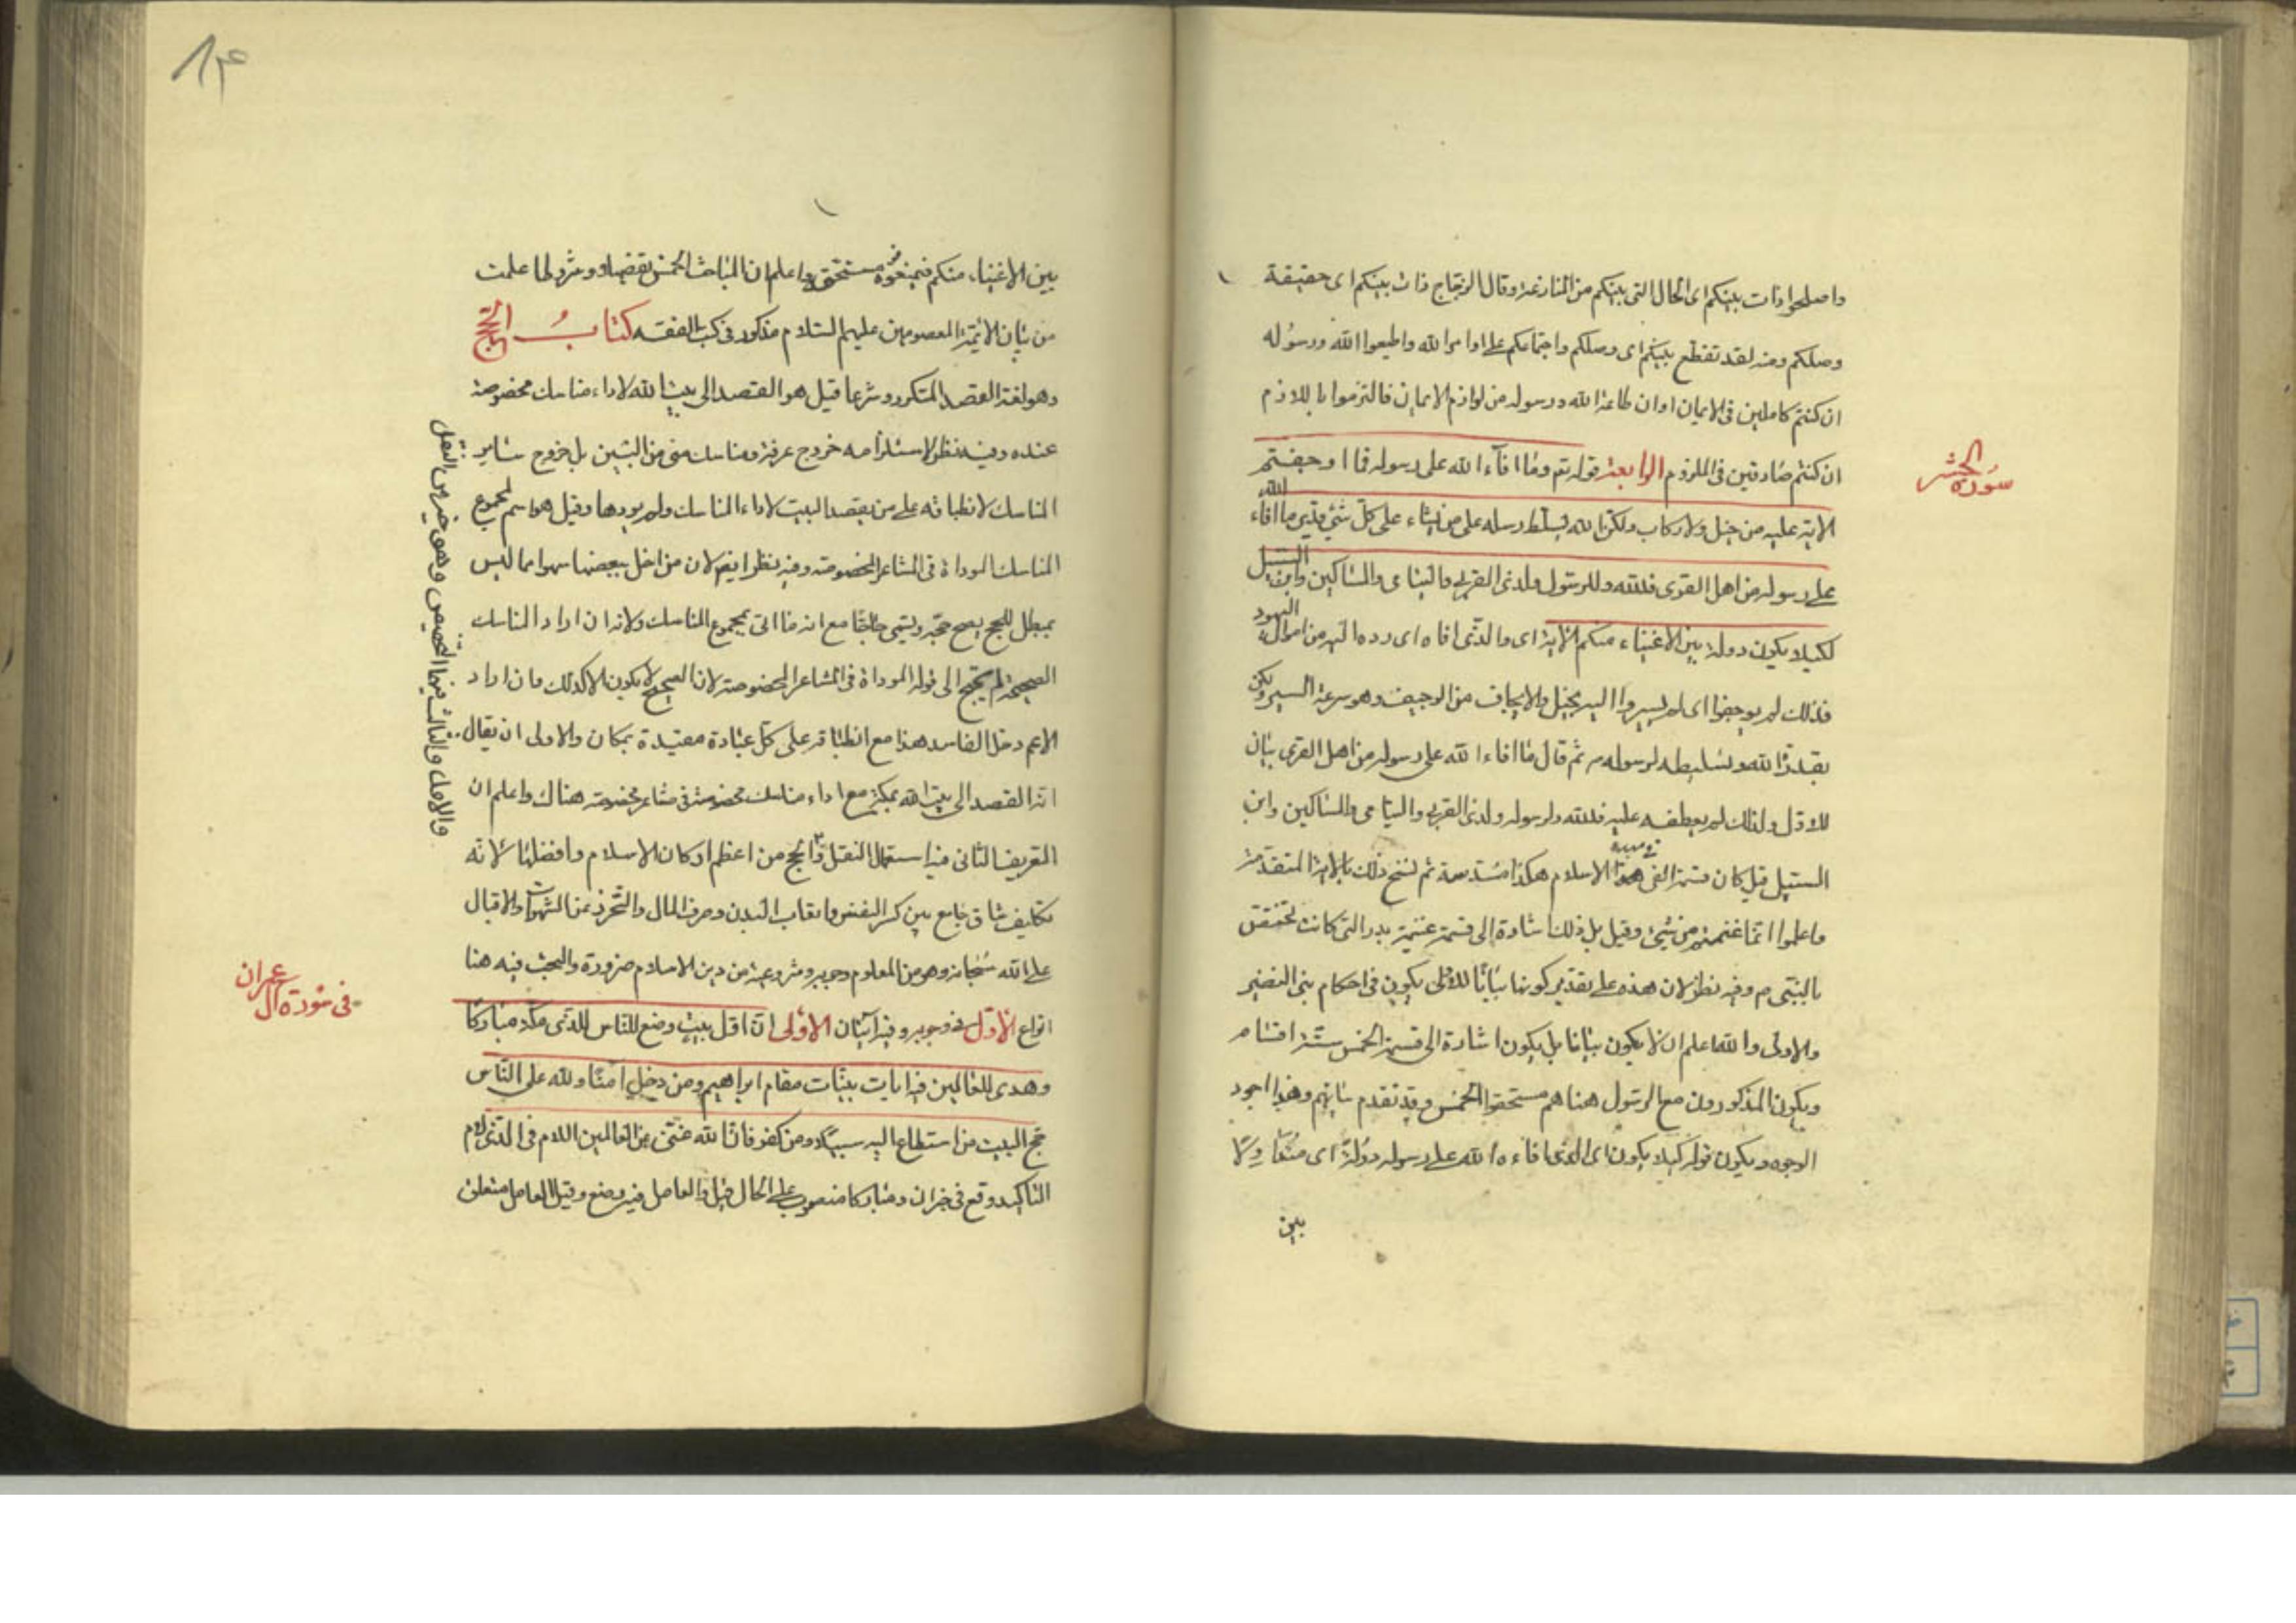 واصلحوا ذات بينكم اى الحال التى بينكم من المنازعة وقال الزجاج ذات بينكم اى حقيقة
وصلكم ومنه لقد تقطع بينكم اى وصلكم واجتماعكم على اوامر الله واطيعوا الله ورسوله
ان كنتم كاملين فى الايمان او ان طاعة الله ورسوله من لوازم الايمان فالتزموا باللازم
ان كنتم صادقين فى الملزوم الرابعة قوله تع وما افآء الله على رسوله فما اوجفتم
سورة الحشر
الاية عليه من خيل ولا ركاب ولكن الله يسلط رسله على من يشاء على كل شئ قدير ما افاء الله
على رسوله من اهل القرى فلله وللرسول ولذى القربى واليتامى والمساكين وابن السبيل
لكيلا يكون دولة بين الاغنياء منكم الاية اى والذى افاه اى رده اليه من اموال اليهود
فذلك لم يوجفوا اى لم يسيروا اليه بخيل والايجاف من الوجيف وهو سرعة السير ولكن
بقدرة الله وتسليطه لرسوله ص ثم قال ما افاء الله على رسوله من اهل القرى بيان
للاول ولذلك لم يعطف عليه فلله ولرسوله ولذى القربى واليتامى والمساكين وابن
السبيل قيل كان قسمة الفئ الاسلام هكذا مسدسة ثم نسخ ذلك بالاية المتقدمة
واعلموا انما غنمتم من شئ وقيل بل ذلك اشارة الى قسمة غنيمة بدر التى كانت تختص
بالنبى ص وفيه نظر لان هذه على تقدير كونها بيانا للاولى يكون فى احكام بنى النضير
والاولى والله اعلم ان لا يكون بيانا بل يكون اشارة الى قسمة الخمس ستة اقسام
ويكون المذكورون مع الرسول هنا هم مستحقوا الخمس وقد تقدم بيانهم وهذا اجود
الوجوه ويكون قوله كيلا يكون اى الذى افاءه الله على رسوله دولة اى
بين
بين الاغنياء منكم فيمنعوه من مستحقيه واعلم ان المباحث الخمس تفصيلا وشروطا علمت
من بيان الائمة المعصومين عليهم السلام مذكور فى كتب الفقه كتاب الحج
وهو لغة القصد المتكرر وشرعا قيل هو القصد الى بيت الله لاداء مناسك مخصوصة
عنده وفيه نظر لاستلزامه خروج عرفة ومناسك منى من البين بل خروج ساير
المناسك لانطباقه على من يقصد البيت لاداء المناسك ولم يودها وقيل هو اسم لمجموع
المناسك المودّاة فى المشاعر المخصوصة وفيه نظر ايضا لان من اخل ببعضها سهوا مما ليس
بمبطل للحج يصح حجه ويسمى حاجّا مع انه ما اتى بمجموع المناسك ولانه ان اراد المناسك
الصحيحة لم يحتج الى قوله المودّاة فى المشاعر المخصوصة لان الصحيح لا يكون الا كذلك وان اراد
الاعم دخل الفاسد هذا مع انطباقه على كل عبادة مقيدة بمكان والاولى ان يقال
انه القصد الى بيت الله بمكة مع اداء مناسك مخصوصة فى مشاعر مخصوصة هناك واعلم ان
التعريف الثانى فيه استعمال النقل والحج من اعظم اركان الاسلام وافضلها لانه
تكليف شاق جامع بين كسر النفس واتعاب البدن وصرف المال والتحرز عن الشهوات والاقبال
على الله سبحانه وهو من المعلوم وجوبه ومشروعيته من دين الاسلام ضرورة والبحث فيه هنا
انواع الاول فى وجوبه وفيه آيتان الاولى ان اول بيت وضع للناس للذى ببكة مباركا
فى سورة آل عمران
وهدى للعالمين فيه ايات بينات مقام ابراهيم ومن دخله كان آمنا ولله على الناس
حج البيت من استطاع اليه سبيلا ومن كفر فان الله غنى عن العالمين اللام فى للذى لام
التاكيد وقع فى خبر ان ومباركا منصوب على الحال قيل والعامل فيه وضع وقيل العامل متعلق
والاول والثالث فيهما التخصيص وهو خير من النقل